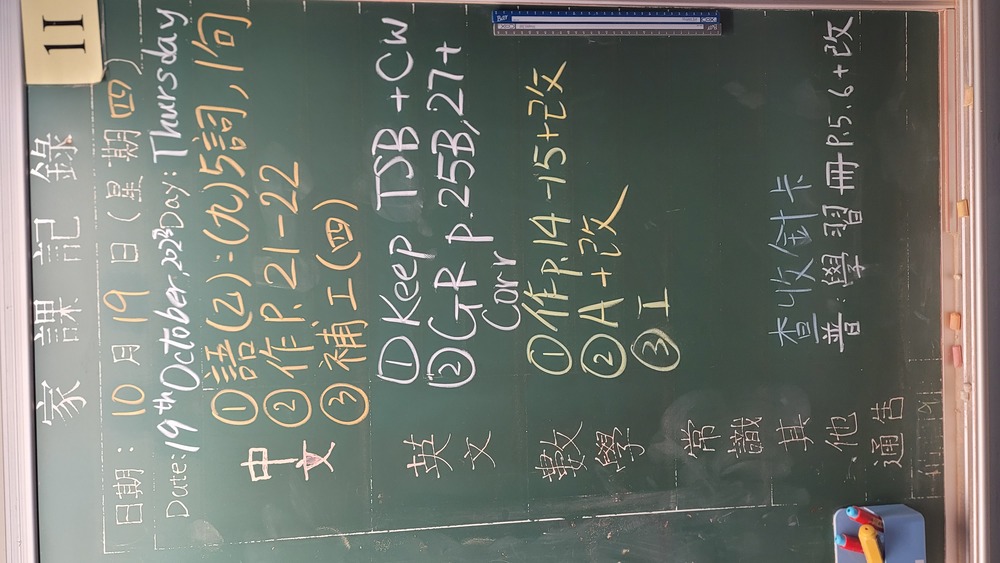 11
家課記錄
日期：10月19日（星期四）
Date: 19th October, 2023 Day: Thursday
中文
①語(乙)：(九)5詞，1句
②作P.21-22
③補工(四)
英文
①Keep TSB + CW
②GR p.25B,27+
Corr
數學
①作P.14-15+改
②A+改
③I
常識
其他
查收針卡
普：學習冊P.5.6+改
通告